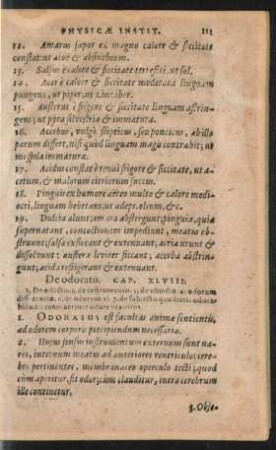 PHYSICÆ INSTIT. 111
12. Amarus sapor ex magno calore & siccitate
constat: ut aloë & absinthium.
13. Salsus è calore & siccitate terrestri, ut sal.
14. Acer è calore & siccitate moderata linguam
pungens, ut piper, ut zinziber.
15. Austerus è frigore & siccitate linguam astrin-
gens; ut pyra silvestria & immatura.
16. Acerbus, vulgò stipticus, seu ponticus, ab illo
parum differt, nisi quod linguam magis contrahit; ut
mespila immatura.
17. Acidus constat è tenui frigore & siccitate, ut a-
cetum, & malorum citriorum succus.
18. Pinguis ex humore aëreo multo & calore medio-
ocri, linguam hebetans, ut adeps, oleum, &c.
19. Dulcia alunt; amara abstergunt; pinguia, quia
supernatant, concoctionem impediunt, meatus ob-
struunt; salsa exsiccant & extenuant; acria urunt &
dissolvunt: austera leviter siccant; acerba abstrin-
gunt; acida refrigerant & extenuant.
De odoratu. CAP. XLVIII.
1. ODORATUS est facultas animæ sentientis,
ad odorem corporis percipiendum necessaria.
2. Hujus sensus instrumentum externum sunt na-
res, internum meatus ad anteriores ventriculos cere-
bri pertinentes, membranaceo operculo tecti; quod
cùm aperitur, fit odor; cùm clauditur, intra cerebrum
ille continetur.
3. Obje-